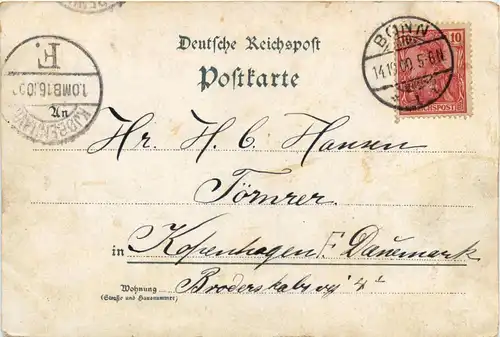 Deutsche Reichspost
Postkarte
BONN
14.10.00 5-6N
10
REICHSPOST
KJØBENHAVN
F.
1.OMB 16.10.00
An
Hr. H. C. Hansen
Tömrer.
in Kopenhagen F. Dänemark
Wohnung
(Straße und Hausnummer)
Broderskabsvej 4¹